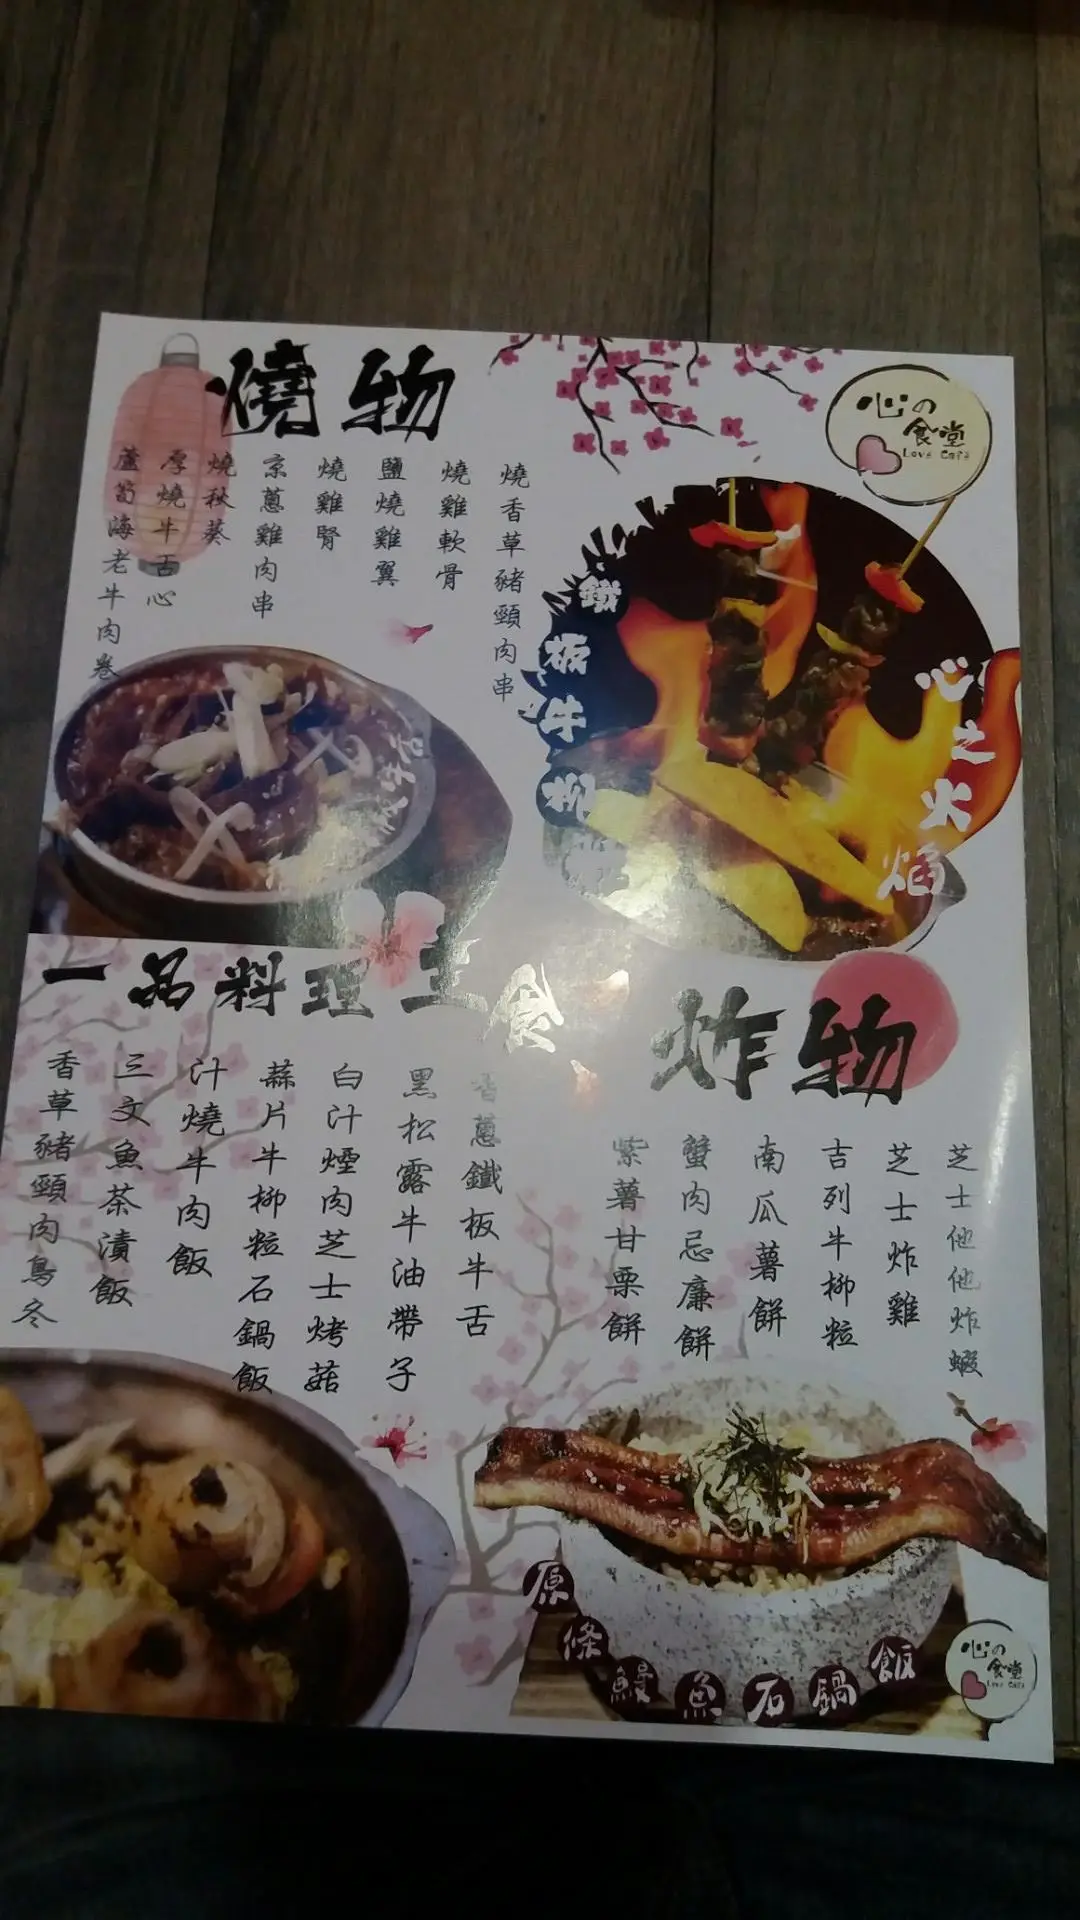 燒物
心の
食堂
Love Café
燒香草豬頸肉串
燒雞軟骨
鹽燒雞翼
燒雞腎
京蔥雞肉串
燒秋葵
厚燒牛舌心
蘆筍海老牛肉卷
鐵板牛柳
心之火焰
一品料理主食
香蔥鐵板牛舌
黑松露牛油帶子
白汁煙肉芝士烤菇
蒜片牛柳粒石鍋飯
汁燒牛肉飯
三文魚茶漬飯
香草豬頸肉烏冬
炸物
芝士他他炸蝦
芝士炸雞
吉列牛柳粒
南瓜薯餅
蟹肉忌廉餅
紫薯甘栗餅
原條鰻魚石鍋飯
心の
食堂
Love Café